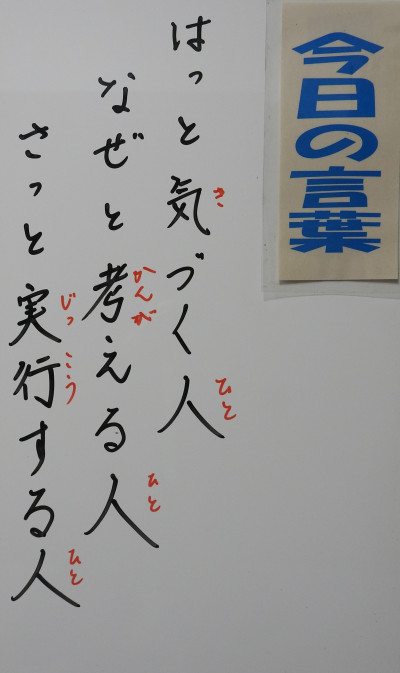 今日の言葉
はっと気づく人
き
ひと
なぜと考える人
かんが
ひと
さっと実行する人
じっこう
ひと